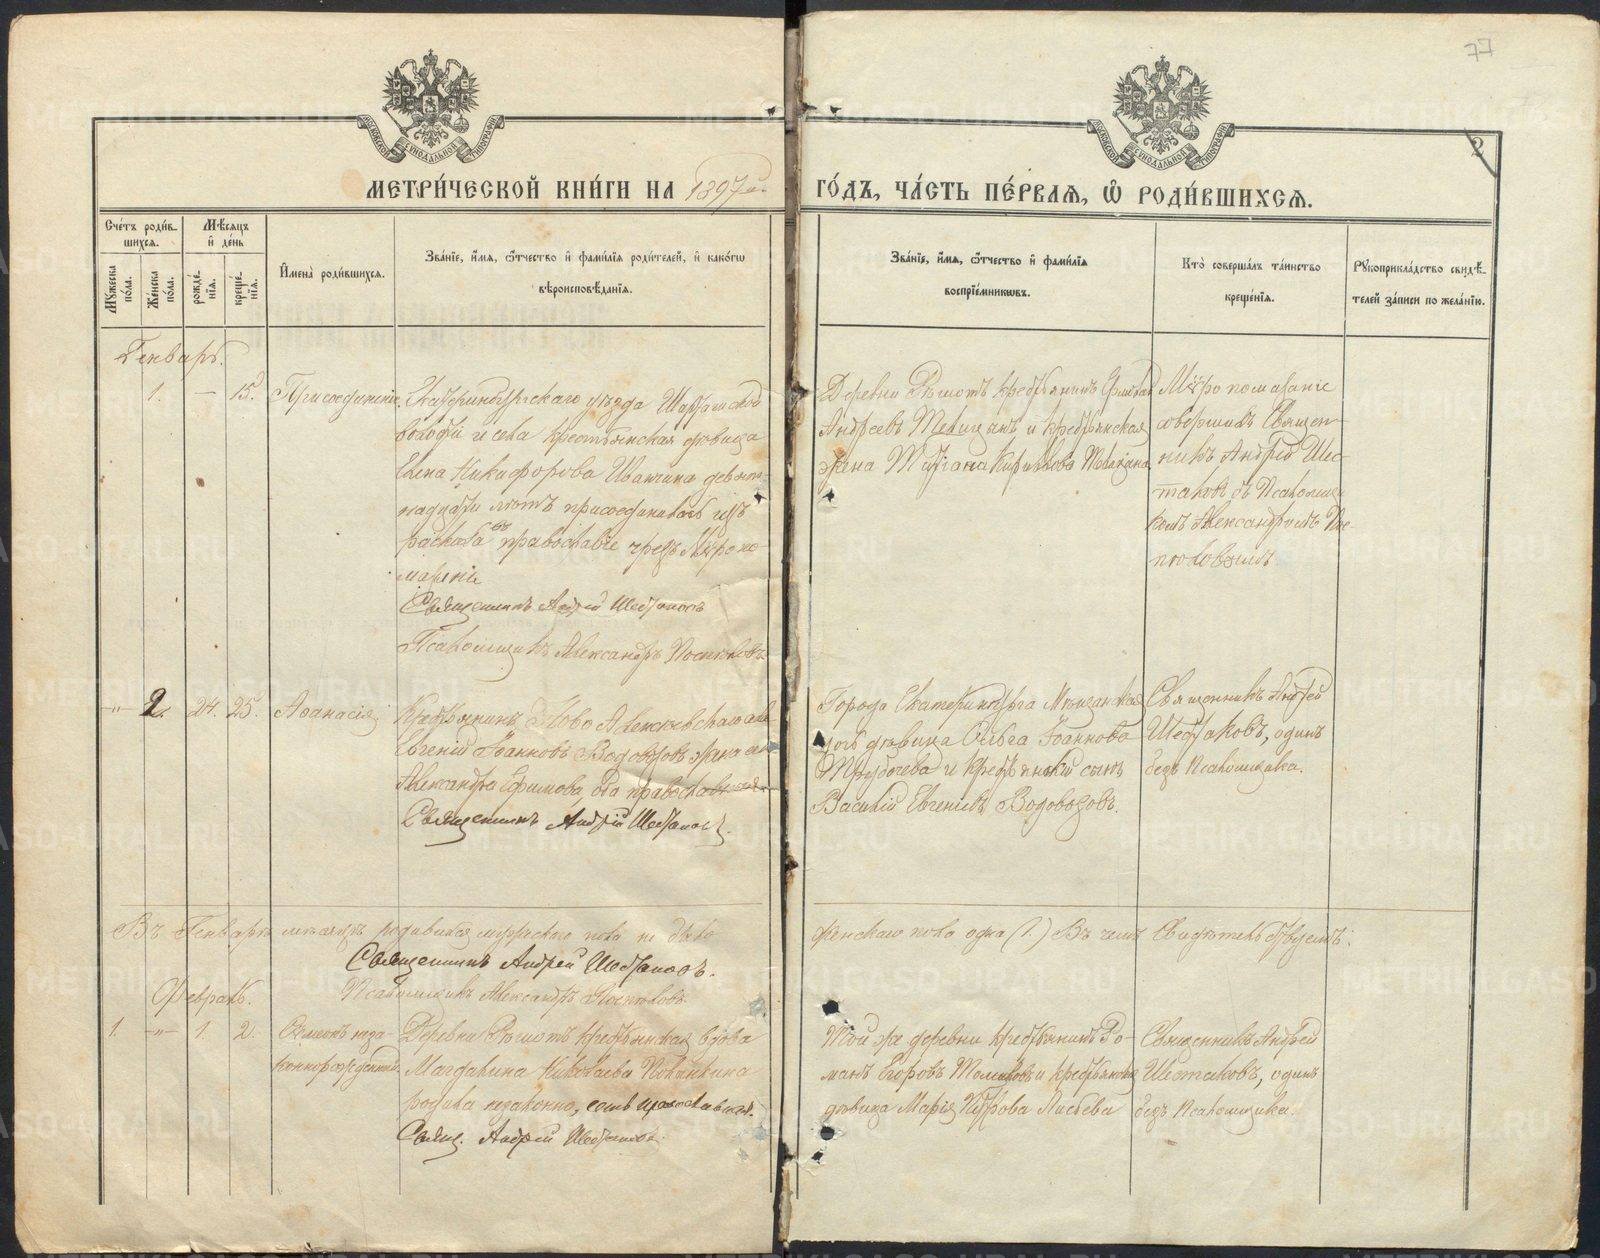 77
2
МОСКОВСКОЙ СѴНОДАЛЬНОЙ ТИПОГРАФІИ
МОСКОВСКОЙ СѴНОДАЛЬНОЙ ТИПОГРАФІИ
МЕТРИ́ЧЕСКОЙ КНИ́ГИ НА 1897й. ГО́ДЪ, ЧА́СТЬ ПЕ́РВАЯ, Ѽ РОДИ́ВШИХСЯ.
Сче́тъ роди́в-
шихся.
Мѣ́сяцъ
и҆ де́нь
Му́жеска
по́ла.
Же́нска
по́ла.
рожде́-
нїя.
креще́-
нїя.
И҆мена̀ роди́вшихся.
Зва́нїе, и҆́мя, ѻ҆́тчество и҆ фами́лїя роди́телей, и҆ како́гѡ
вѣроисповѣ́данїя.
Зва́нїе, и҆́мя, ѻ҆́тчество и҆ фами́лїя
воспрїе́мникѡвъ.
Кто̀ соверша́лъ та́инство
креще́нїя.
Рꙋкоприкла́дство свидѣ́-
телей за́писи по жела́нїю.
Генварь.
1. — 15. Присоединеніе.
Екатеринбургскаго уѣзда Шарташской
волости и села крестьянская дѣвица
Елена Никифорова Иванчина девят-
надцати лѣтъ присоединилась изъ
раскола въ православіе чрезъ Мѵропо-
мазаніе
Священникъ Андрей Шестаковъ
Псаломщикъ Александръ
Деревни Рѣшотъ крестьянинъ
Андреевъ и крестьянская
жена Татіана
Мѵропомазаніе
совершилъ Священ-
никъ Андрей Ше-
стаковъ съ Псаломщи-
комъ Александромъ
—"— 2. 24. 25. Аѳанасія
Крестьянинъ Ново Алексѣевскаго села
Евгеній Іоанновъ Водовозовъ жена его
Александра Ефимова оба православные.
Священникъ Андрей Шестаковъ.
Города Екатеринбурга Мѣщанская
дочь дѣвица Ольга Іоаннова
Трубачева и крестьянскій сынъ
Василій Евгеніевъ Водовозовъ.
Священникъ Андрей
Шестаковъ, одинъ
безъ Псаломщика.
Въ Генварѣ мѣсяцѣ родившихся мужескаго пола не было
женскаго пола одна (1.) Въ чемъ Свидѣтельствуемъ:
Священникъ Андрей Шестаковъ.
Псаломщикъ Александръ
Февраль.
1. —"— 1. 2. Симеонъ неза-
коннорожденный
Деревни Рѣшотъ крестьянская вдова
Магдалина Николаева
родила незаконно, сама православная.
Свящ. Андрей Шестаковъ.
Той же деревни крестьянинъ Ро-
манъ Егоровъ и крестьянская
дѣвица Марія Петрова
Священникъ Андрей
Шестаковъ, одинъ
безъ Псаломщика.
METRIKI.GASO-URAL.RU